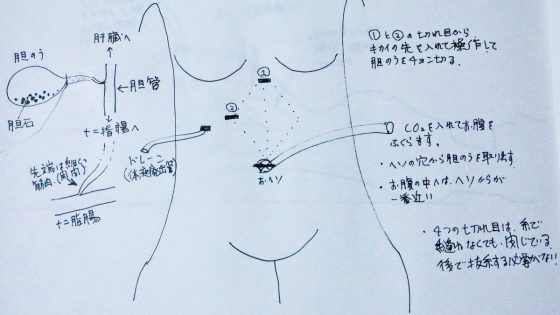 肝臓へ
↑
胆のう
←胆管
胆石
↓
十二指腸へ
先端は細い
筋肉(開閉)
十二指腸
①
②
ドレーン
(体液廃出管)
おヘソ
①と②の切れ目から
キカイの先を入れて操作して
胆のうをチョン切る。
CO₂を入れてお腹を
ふくらます。
・ヘソの穴から胆のうを取り出す
・お腹の中へは、ヘソからが
一番近い
・4つの切れ目は、糸で
縫わなくても、閉じている
後で抜糸する必要がない!